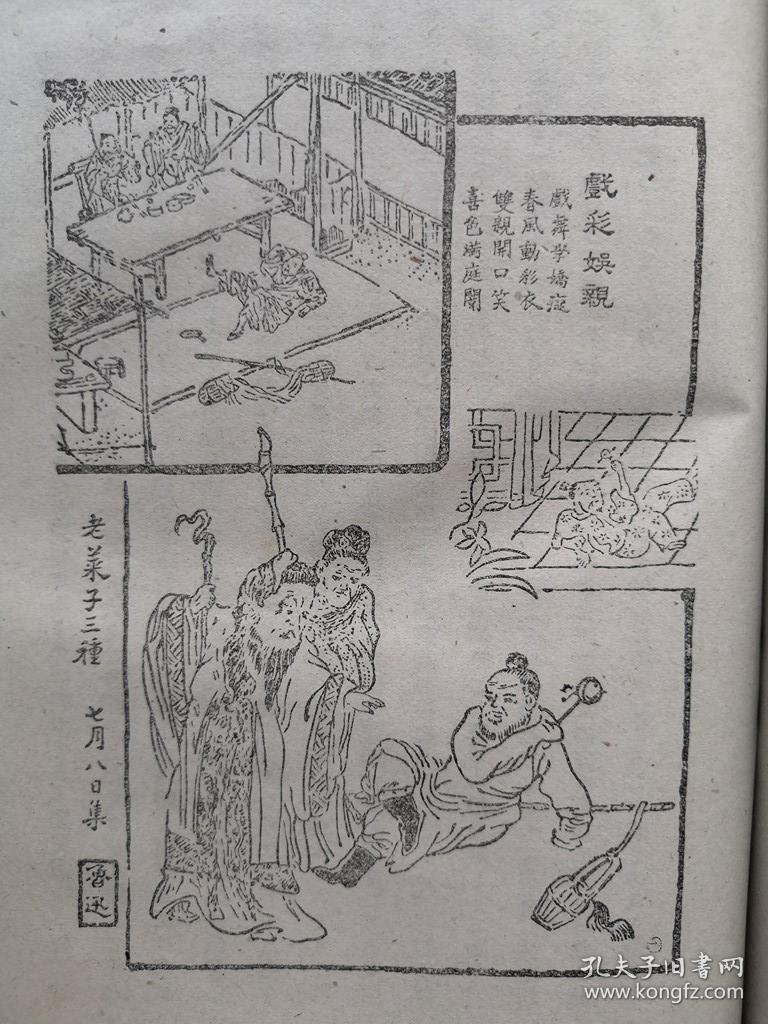 戲彩娛親
戲舞學嬌癡
春風動彩衣
雙親開口笑
喜色滿庭闈
老萊子三種 七月八日集
魯迅
一
孔夫子旧書网
www.kongfz.com